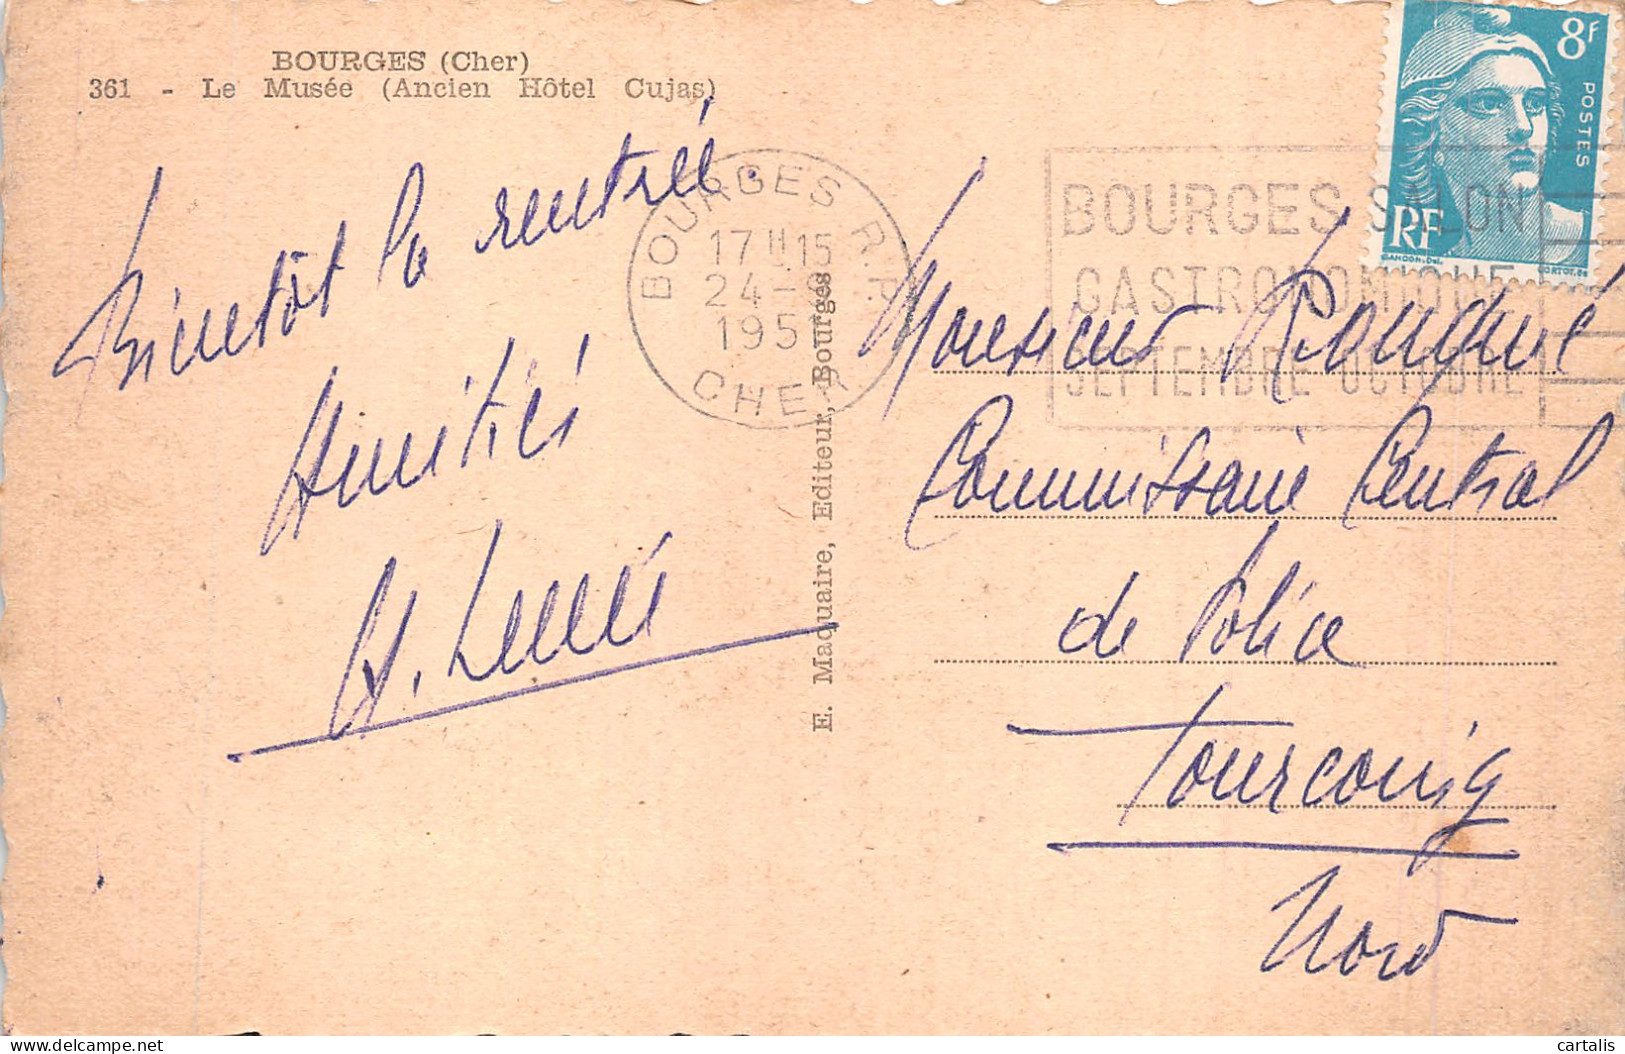 BOURGES (Cher)
361 - Le Musée (Ancien Hôtel Cujas)
Bientôt la rentrée.
Amitiés
H.
E. Maquaire, Editeur, Bourges
BOURGES R.P.
17H15
24-9
195
CHER
BOURGES SALON
GASTRONOMIQUE
SEPTEMBRE-OCTOBRE
8F
POSTES
RF
GANDON.del.
CORTOT.sc
Monsieur
Commissaire Central
de Police
Tourcoing
Nord
cartalis